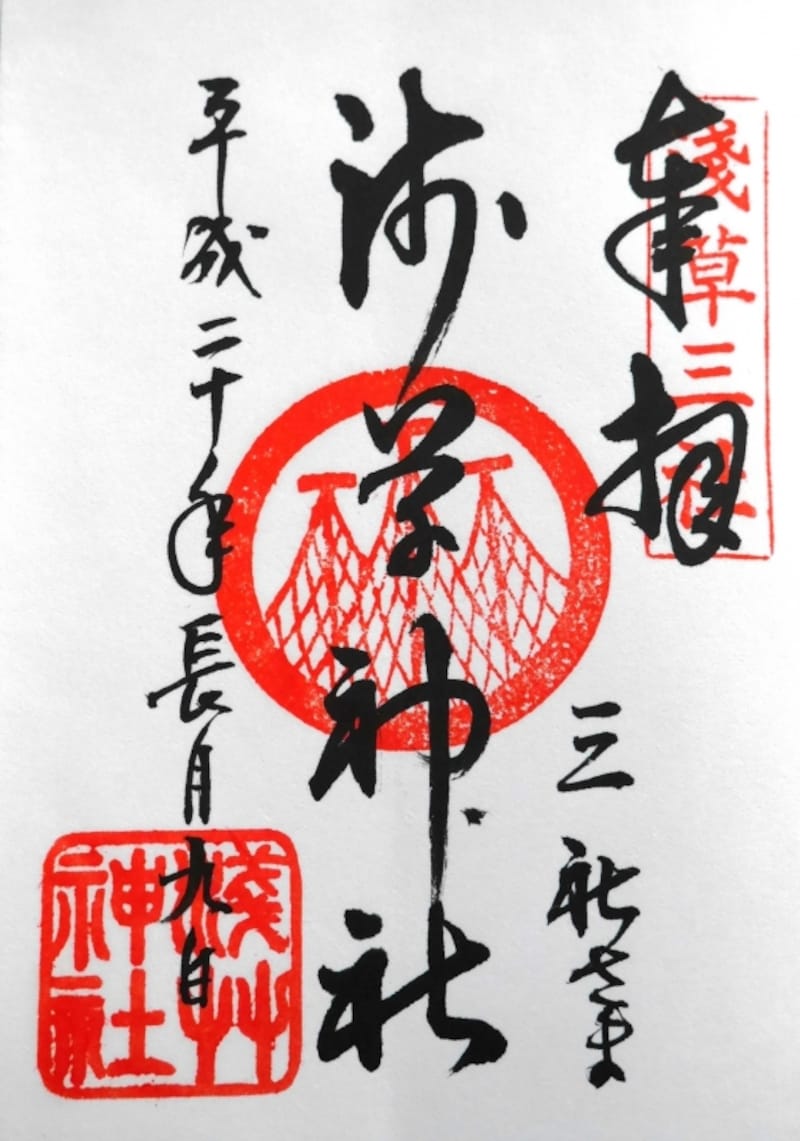 奉拝
淺草三社
三社さま
浅草神社
平成二十年長月九日
淺草神社